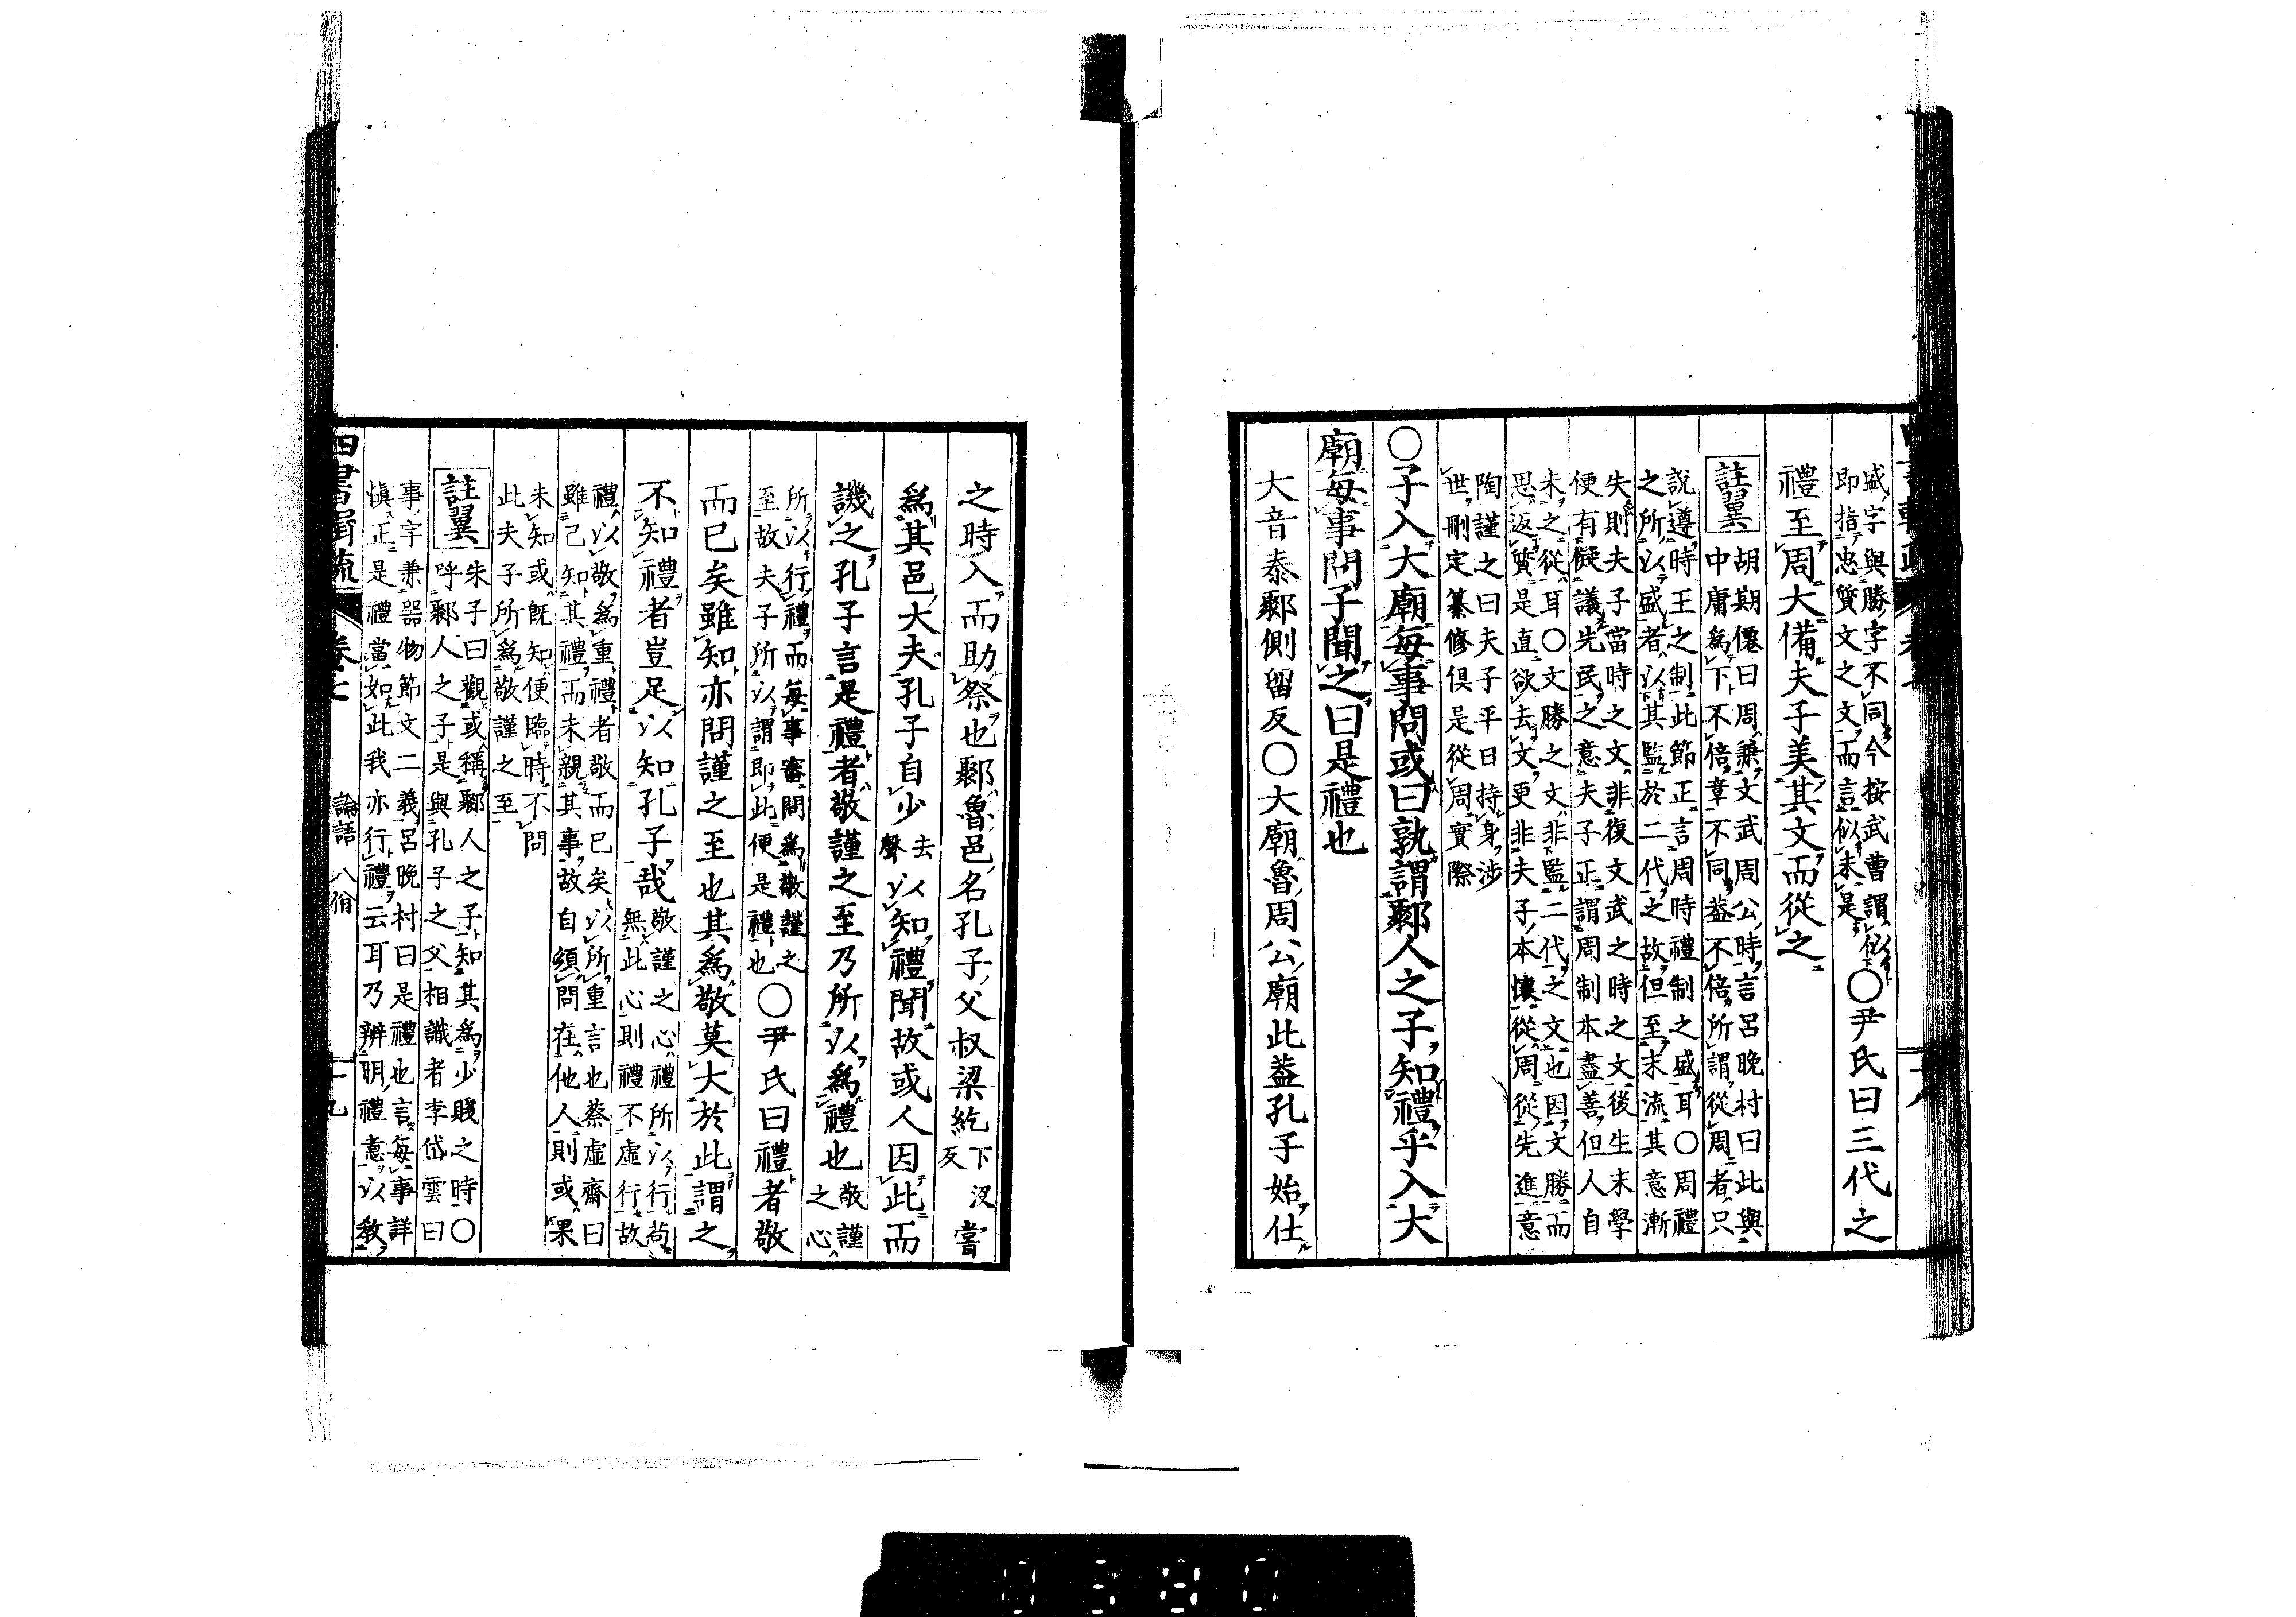 盛字與勝字不同今按武曹謂似
即指忠質文之文而言似未是
〇尹氏曰三代之
禮至周大備夫子美其文而從之
註翼
胡期僊曰周兼文武周公時言呂晚村曰此與
中庸爲下不倍章不同蓋不倍所謂從周者只
說遵時王之制此節正言周時禮制之盛耳〇周禮
之所以盛者以其監於二代之故但至末流其意漸
失則夫子當時之文非復文武之時之文後生末學
便有儗議先民之意夫子正謂周制本盡善但人自
未之從耳〇文勝之文非監二代之文也因文勝而
思返質是直欲去文更非夫子本懷從周從先進意
陶謹之曰夫子平日持身涉
世刪定纂修俱是從周實際
〇子入大廟每事問或曰孰謂鄹人之子知禮乎入大
廟每事問子聞之曰是禮也
大音泰鄹側留反〇大廟魯周公廟此蓋孔子始仕
之時入而助祭也鄹魯邑名孔子父叔梁紇
下沒
反
嘗
爲其邑大夫孔子自少
去
聲
以知禮聞故或人因此而
譏之孔子言是禮者敬謹之至乃所以爲禮也
敬謹
之心
所以行禮而每事審問爲敬謹之
至故夫子所以謂即此便是禮也
〇尹氏曰禮者敬
而已矣雖知亦問謹之至也其爲敬莫大於此謂之
不知禮者豈足以知孔子哉
敬謹之心禮所以行苟
無此心則禮不虛行故
禮以敬爲重禮者敬而已矣以所重言也蔡虛齋曰
雖己知其禮而未親其事故自須問在他人則或果
未知或既知便臨時不問
此夫子所爲敬謹之至
註翼
朱子曰觀或稱鄹人之子知其爲少賤之時〇
呼鄹人之子是與孔子之父相識者李岱雲曰
事字兼器物節文二義呂晚村曰是禮也言每事詳
愼正是禮當如此我亦行禮云耳乃辨明禮意以敎
四書輯疏
論語 八佾
十九